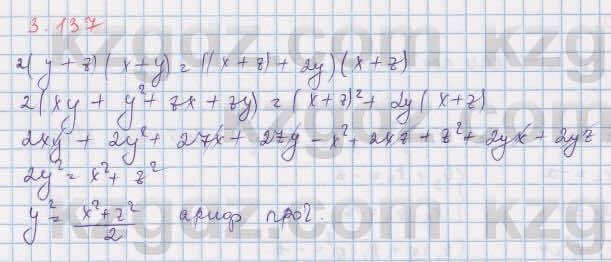 3.137
2(y+z)(x+y)=((x+z)+2y)(x+z)
2(xy+y²+zx+zy)=(x+z)²+2y(x+z)
2xy+2y²+2zx+2zy=x²+2xz+z²+2yx+2yz
2y²=x²+z²
y²=\frac{x²+z²}{2} ариф прог.
kzgdz.com